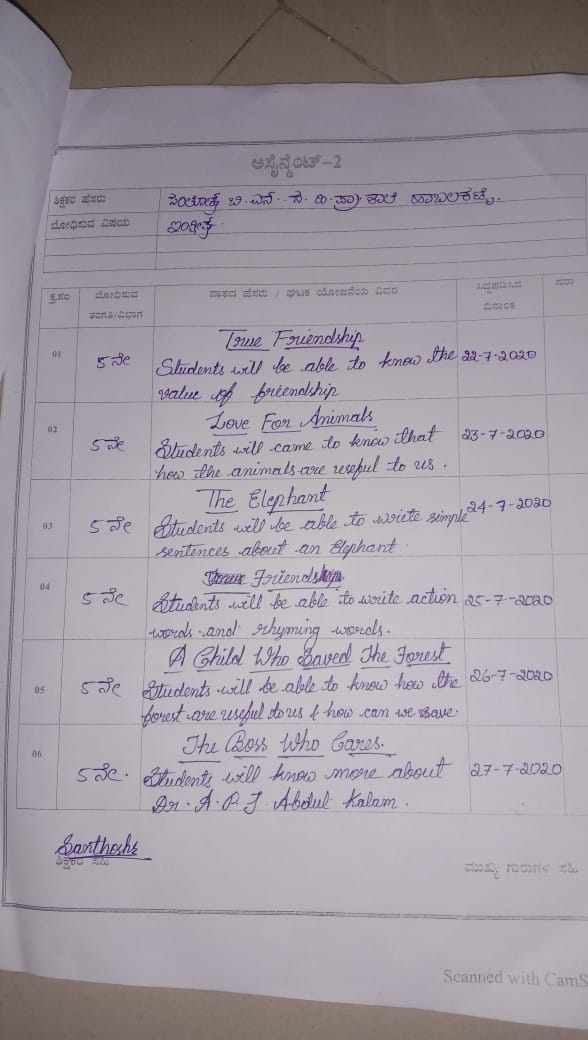 ಅಸೈನ್ಮೆಂಟ್-2
ಶಿಕ್ಷಕರ ಹೆಸರು ಸಂತೋಷ ಬಿ.ಎನ್. ಸ. ಹಿ. ಪ್ರಾ. ಶಾಲೆ ಹಾಬಲಕಟ್ಟೆ.
ಬೋಧಿಸುವ ವಿಷಯ
ಕ್ರ.ಸಂ ಬೋಧಿಸುವ ತರಗತಿ/ವಿಭಾಗ ಪಾಠದ ಹೆಸರು / ಘಟಕ ಯೋಜನೆಯ ವಿವರ ಸಿದ್ಧಪಡಿಸಿದ ದಿನಾಂಕ ಷರಾ
True Friendship
01 5ನೇ Students will be able to know the 22-7-2020
value of friendship
Love For Animals
02 5ನೇ Students will came to know that 23-7-2020
how the animals are useful to us.
The Elephant
03 5ನೇ Students will be able to write simple 24-7-2020
sentences about an Elephant.
True Friendship
04 5ನೇ Students will be able to write action 25-7-2020
words and rhyming words.
A Child Who Saved The Forest
05 5ನೇ Students will be able to know how the 26-7-2020
forest are useful to us & how can we save.
The Boss Who Cares.
06 5ನೇ. Students will know more about 27-7-2020
Dr. A. P. J. Abdul Kalam.
Santhosha
ಶಿಕ್ಷಕರ ಸಹಿ ಮುಖ್ಯ ಗುರುಗಳ ಸಹಿ
Scanned with CamS